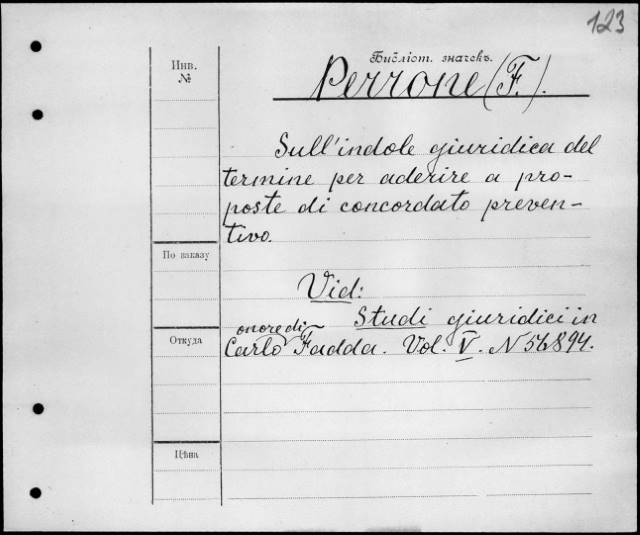 123
Инв.
№
Бібліот. значекъ.
Perrone (F.).
Sull'indole giuridica del
termine per aderire a pro-
poste di concordato preven-
tivo.
По заказу
Vid:
Studi giuridici in
onore di
Откуда
Carlo Fadda. Vol. V. N 56894.
Цѣна